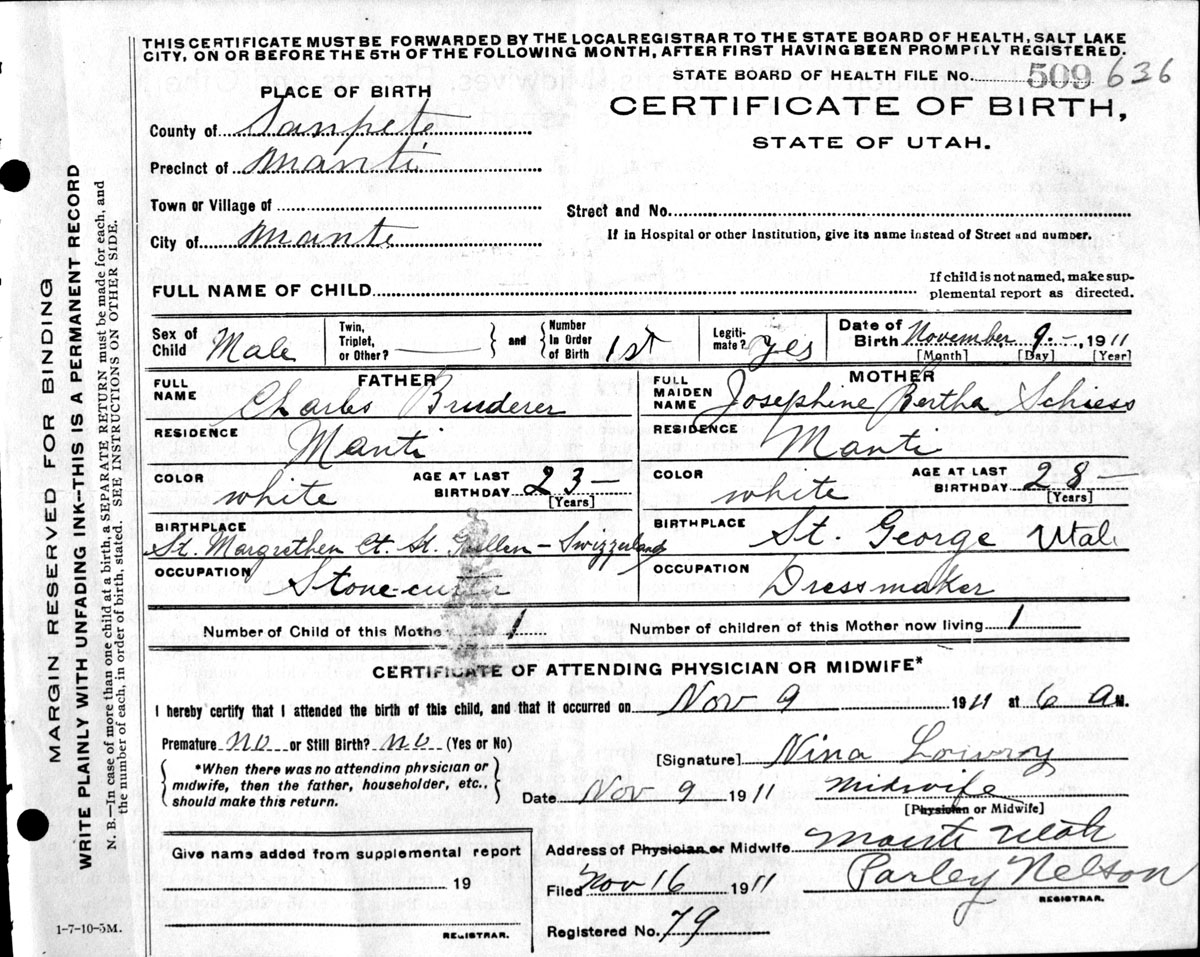 THIS CERTIFICATE MUST BE FORWARDED BY THE LOCAL REGISTRAR TO THE STATE BOARD OF HEALTH, SALT LAKE
CITY, ON OR BEFORE THE 5TH OF THE FOLLOWING MONTH, AFTER FIRST HAVING BEEN PROMPTLY REGISTERED.
STATE BOARD OF HEALTH FILE NO. 509 636
PLACE OF BIRTH
CERTIFICATE OF BIRTH,
STATE OF UTAH.
County of Sanpete
Precinct of Manti
Town or Village of
Street and No.
City of Manti
If in Hospital or other Institution, give its name instead of Street and number.
FULL NAME OF CHILD
If child is not named, make sup-
plemental report as directed.
Sex of Child Male
Twin, Triplet, or Other?
and
Number In Order of Birth 1st
Legiti-mate? yes
Date of Birth November 9 - , 1911
[Month] [Day] [Year]
FATHER
FULL NAME Charles Bruderer
MOTHER
FULL MAIDEN NAME Josephine Bertha Schiess
RESIDENCE Manti
RESIDENCE Manti
COLOR white
AGE AT LAST BIRTHDAY 23 –
[Years]
COLOR white
AGE AT LAST BIRTHDAY 28 –
[Years]
BIRTHPLACE
St. Margrethen Ct. St. Gallen – Swizzerland
BIRTHPLACE St. George Utah
OCCUPATION Stone-cutter
OCCUPATION Dressmaker
Number of Child of this Mothe 1
Number of children of this Mother now living 1
CERTIFICATE OF ATTENDING PHYSICIAN OR MIDWIFE*
I hereby certify that I attended the birth of this child, and that it occurred on Nov 9 1911 at 6 a M.
Premature no or Still Birth? no (Yes or No)
*When there was no attending physician or
midwife, then the father, householder, etc.,
should make this return.
[Signature] Nina Lowry
Date Nov 9 1911 Midwife
[Physician or Midwife]
Address of Physician or Midwife Manti Utah
Give name added from supplemental report
19
REGISTRAR.
Filed Nov 16 1911 Parley Nelson
REGISTRAR.
Registered No. 79
1-7-10-5M.
MARGIN RESERVED FOR BINDING
WRITE PLAINLY WITH UNFADING INK--THIS IS A PERMANENT RECORD
N. B.—In case of more than one child at a birth, a SEPARATE RETURN must be made for each, and
the number of each, in order of birth, stated. SEE INSTRUCTIONS ON OTHER SIDE.